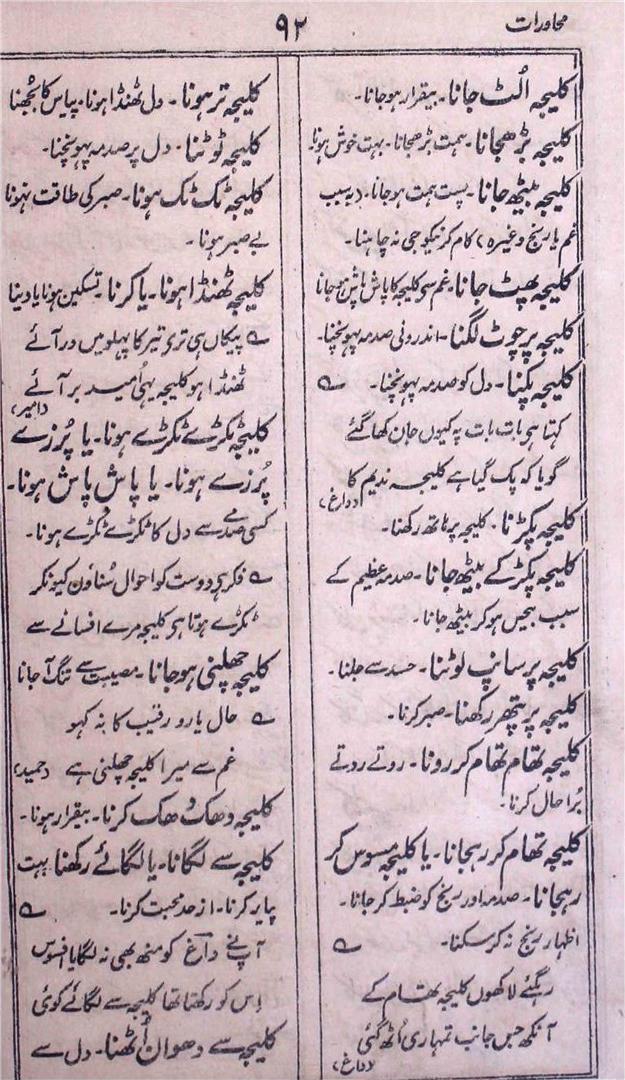 محاورات
۹۲
کلیجہ اُلٹ جانا۔ بیقرار ہو جانا۔
کلیجہ بڑھجانا۔ ہمت بڑھجانا۔ بہت خوش ہونا
کلیجہ بیٹھ جانا۔ پست ہمت ہو جانا۔ (بہ سبب
غم یا رنج وغیرہ) کام کرنیکو جی نہ چاہنا۔
کلیجہ پھٹ جانا۔ غم سی کلیجہ کا پاش پاش ہو جانا
کلیجہ پر چوٹ لگنا۔ اندرونی صدمہ پہونچنا۔
کلیجہ پکنا۔ دل کو صدمہ پہونچنا۔ ؎
کہتا ہی بات بات پہ کیوں جان کھا گئے
گویا کہ پک گیا ہے کلیجہ ندیم کا
(داغ)
کلیجہ پکڑنا۔ کلیجہ پر ہاتھ رکھنا۔
کلیجہ پکڑ کے بیٹھ جانا۔ صدمہ عظیم کے
سبب بیحس ہو کر بیٹھ جانا۔
کلیجہ پر سانپ لوٹنا۔ حسد سے جلنا۔
کلیجہ پر پتھر رکھنا۔ صبر کرنا۔
کلیجہ تھام تھام کر رونا۔ روتے روتے
بُرا حال کرنا۔
کلیجہ تھام کر رہجانا۔ یا کلیجہ مسوس کر
رہجانا۔ صدمہ اور رنج کو ضبط کر جانا۔
اظہار رنج نہ کر سکنا۔ ؎
رہگئے لاکھوں کلیجہ تھام کے
آنکھ جس جانب تمہاری اُٹھ گئی
(داغ)
کلیجہ تر ہونا۔ دل ٹھنڈا ہونا۔ پیاس کا بُجھنا
کلیجہ ٹوٹنا۔ دل پر صدمہ پہونچنا۔
کلیجہ ٹک ٹک ہونا۔ صبر کی طاقت نہونا
بے صبر ہونا۔
کلیجہ ٹھنڈا ہونا۔ یا کرنا۔ تسکین ہونا یا دینا
؎ پیکاں ہی تری تیر کا پہلو میں در آئے
ٹھنڈا ہو کلیجہ یہی اُمید بر آئے
(امیر)
کلیجہ ٹکڑے ٹکڑے ہونا۔ یا پُرزے
پُرزے ہونا۔ یا پاش پاش ہونا۔
کسی صدمے سے دل کا ٹکڑے ٹکڑے ہونا۔
؎ فکر ہی دوست کو احوال سُناؤں کیونکر
ٹکڑے ہوتا ہی کلیجہ مرے افسانے سے
کلیجہ چھلنی ہو جانا۔ مصیبت سے تنگ آ جانا
؎ حال یارو رقیب کا نہ کہو
غم سے میرا کلیجہ چھلنی ہے (حمید)
کلیجہ دھک دھک کرنا۔ بیقرار ہونا۔
کلیجہ سے لگانا۔ یا لگائے رکھنا بہت
پیار کرنا۔ از حد محبت کرنا۔ ؎
آپنے داغ کو منھ بھی نہ لگایا افسوس
اِس کو رکھتا تھا کلیجہ سے لگائے کوئی
کلیجہ سے دھواں اُٹھنا۔ دل سے